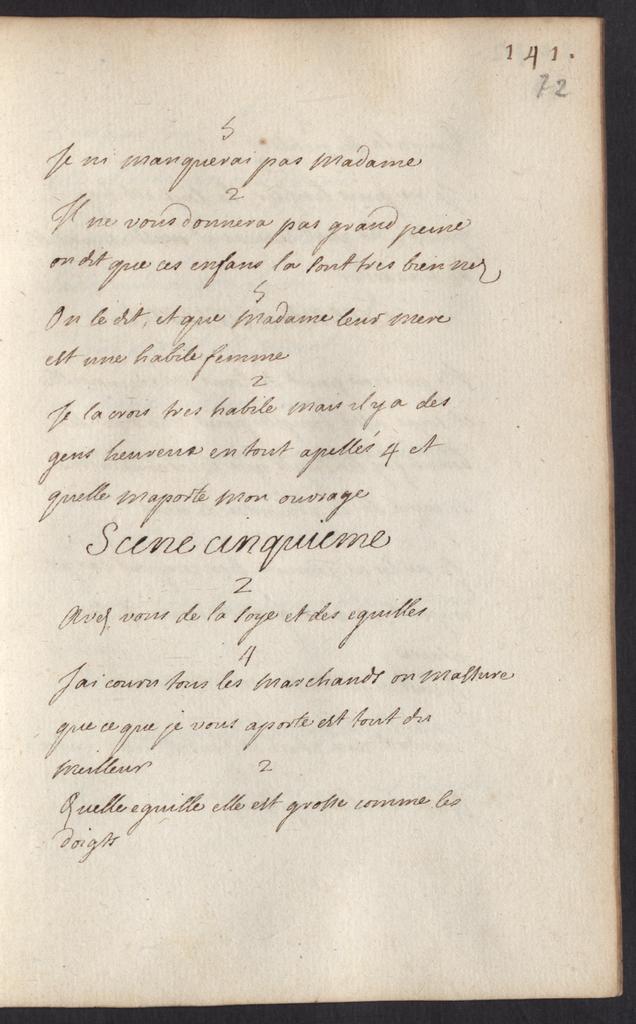 141.
72
5
Je ni manquerai pas Madame
2
Il ne vous donnera pas grand peine
on dit que ces enfans la sont tres bien nez
5
On le dit, et que Madame leur mere
est une habile femme
2
Je la crois tres habile mais il y a des
gens heureux en tout apellés 4 et
quelle maporte mon ouvrage
Scene cinquieme
2
Avez vous de la soye et des eguilles
4
Jai couru tous les marchands on massure
que ce que je vous aporte est tout du
meilleur
2
Quelle eguille elle est grosse comme les
doigts